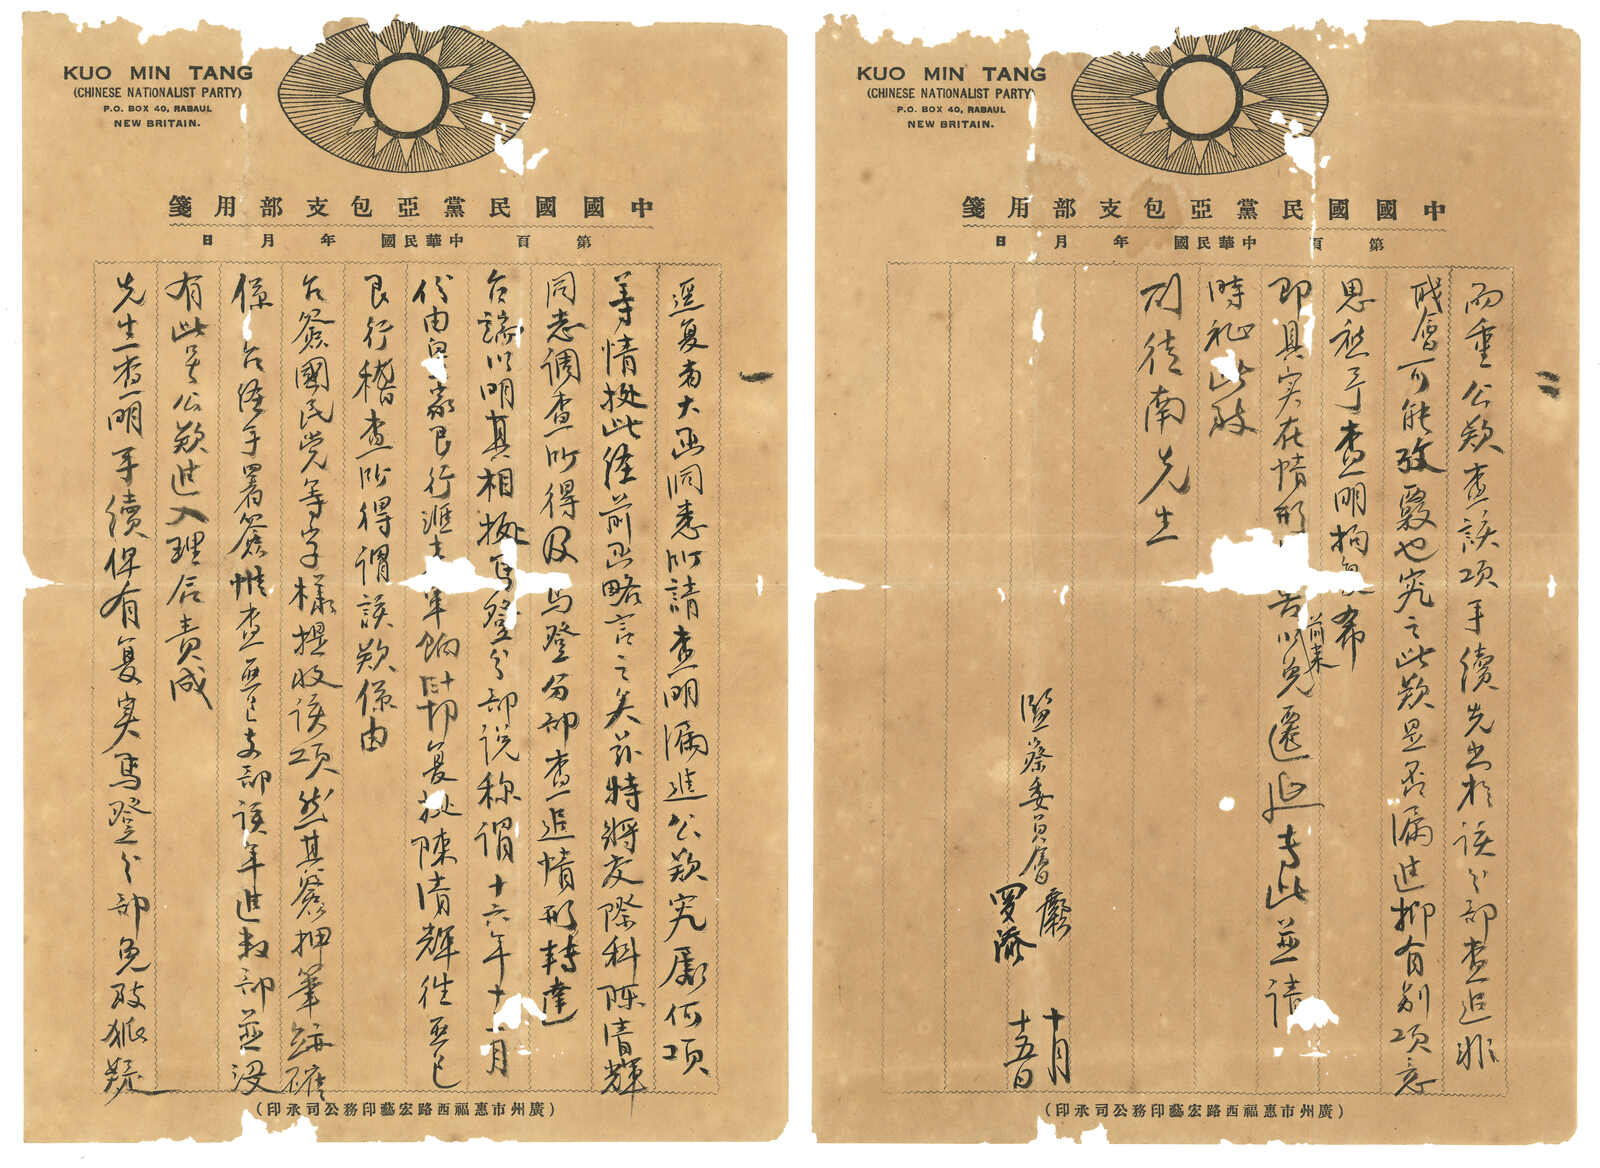 KUO MIN TANG
(CHINESE NATIONALIST PARTY)
P.O. BOX 40, RABAUL
NEW BRITAIN.
中國國民黨亞包支部用箋
第 頁 中華民國 年 月 日
逕复者大函洞悉所請查明漏進公欵究屬何項
等情拠此經前函略言之矣茲特將交際科陈清輝
同志調查所得及 馬登分部查追情形轉達
台端以明真相拠馬登分部説称謂十六年十一月
份由 行滙去 軍餉 復 拠陳清輝往亞包
艮行稽查所得謂該欵係由
台簽國民党等字樣提收该项然其簽押筆跡確
係 台經手署簽惟查亞包支部该年進数部並沒
有此 公欵進入理合責成
先生查明手續俾有复实馬登分部免致狐疑
(廣州市惠福西路宏藝印務公司承印)
KUO MIN TANG
(CHINESE NATIONALIST PARTY)
P.O. BOX 40, RABAUL
NEW BRITAIN.
中國國民黨亞包支部用箋
第 頁 中華民國 年 月 日
而重公欵查該項手續先生於该分部查追非
戓會可能 也究之此欵是否漏進抑有别項意
思祈 查明 希
即具实在情形 告前来以免遷延专此並請
時祉此致
刘徒南先生
監察委員會
羅
十月
十五日
(廣州市惠福西路宏藝印務公司承印)